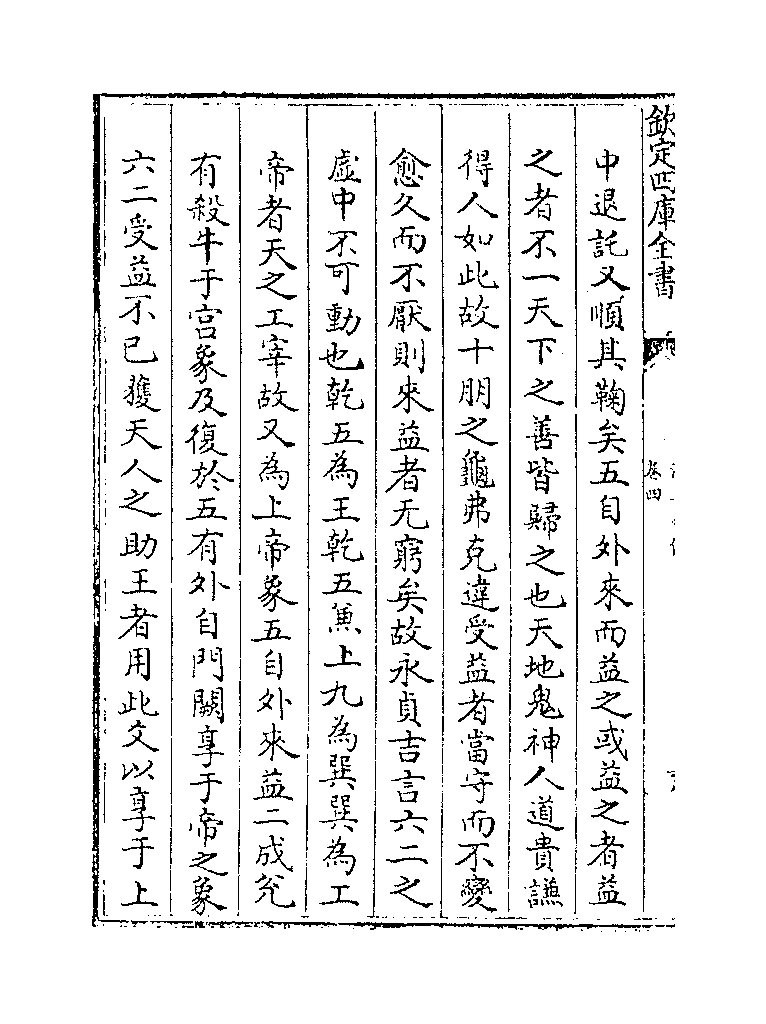 欽定四庫全書
卷四
中退託又順其鞠矣五自外來而益之或益之者益
之者不一天下之善皆歸之也天地鬼神人道貴謙
得人如此故十朋之龜弗克違受益者當守而不變
愈久而不厭則來益者无窮矣故永貞吉言六二之
虛中不可動也乾五為王乾五兼上九為巽巽為工
帝者天之工宰故又為上帝象五自外來益二成兊
有殺牛于宫象及復於五有外自門闕享于帝之象
六二受益不已獲天人之助王者用此爻以享于上